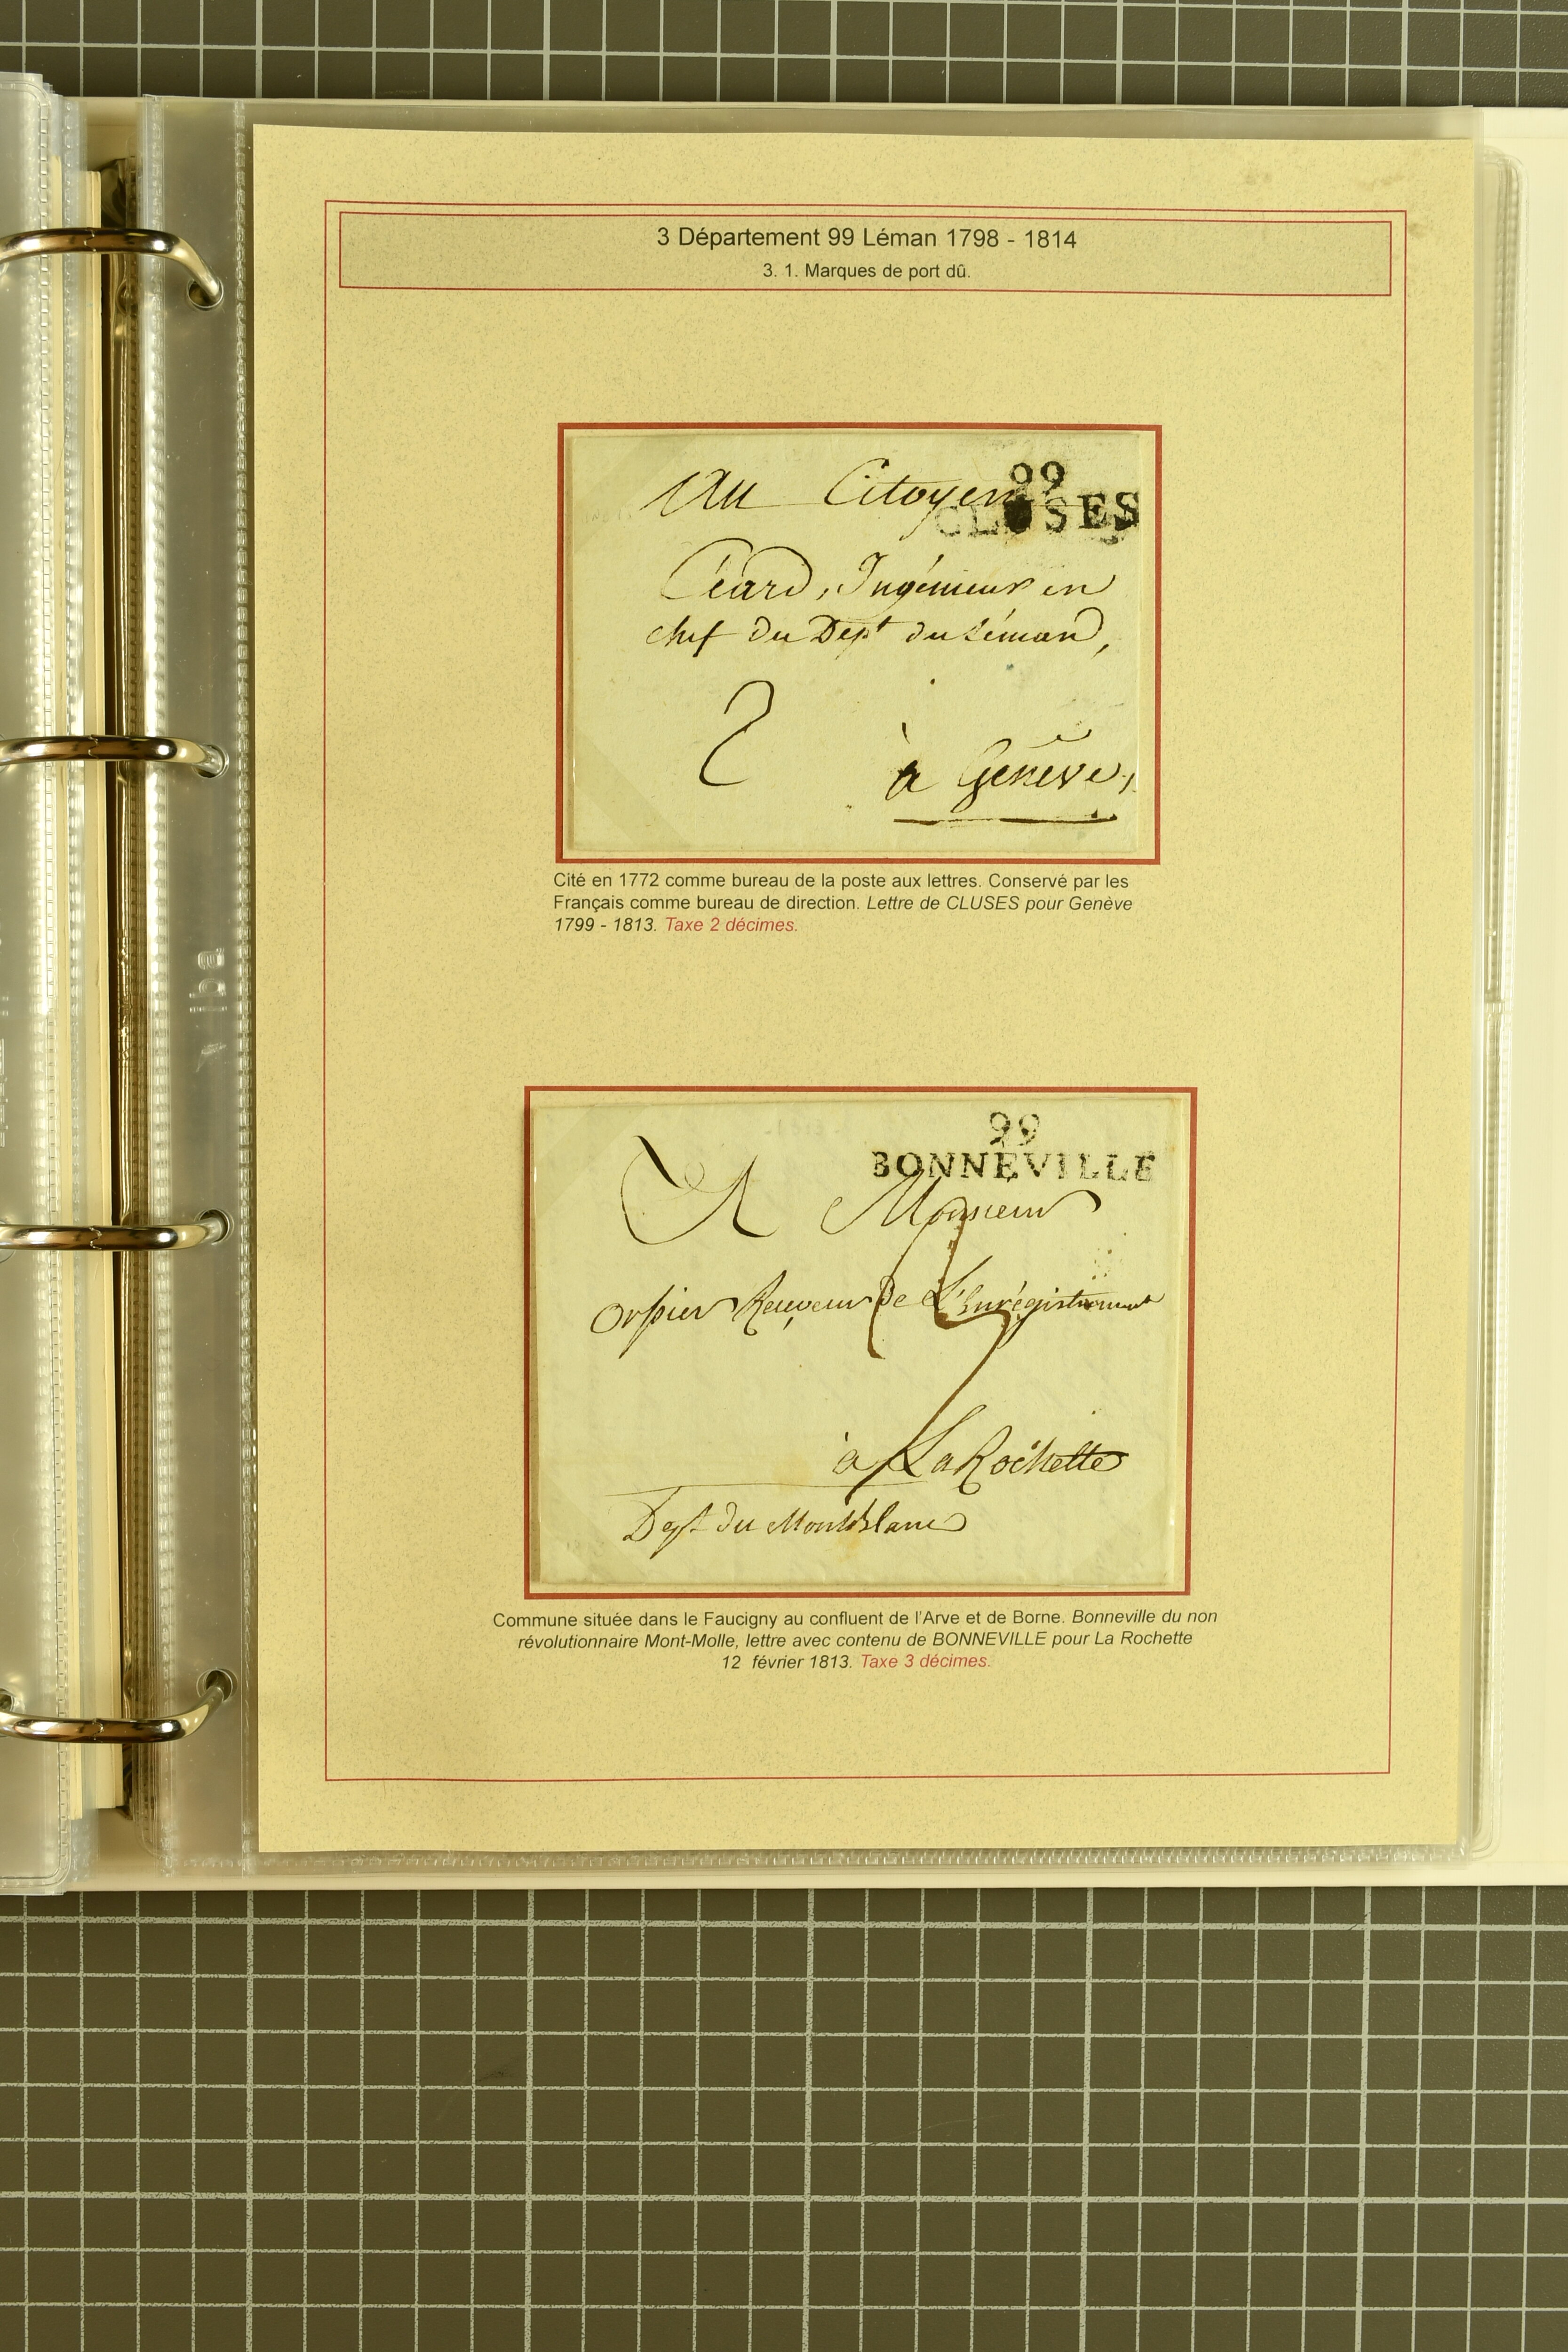 3 Département 99 Léman 1798 - 1814
3. 1. Marques de port dû.
99
CLUSES
Au Citoyen
Céard, Ingénieur en
chef du Dept du Léman,
2
à Genève,
Cité en 1772 comme bureau de la poste aux lettres. Conservé par les
Français comme bureau de direction. Lettre de CLUSES pour Genève
1799 - 1813. Taxe 2 décimes.
99
BONNEVILLE
A Monsieur
Orsier Receveur De L'Enrégistrement
à La Rochette
Dept du Montblanc
Commune située dans le Faucigny au confluent de l'Arve et de Borne. Bonneville du non
révolutionnaire Mont-Molle, lettre avec contenu de BONNEVILLE pour La Rochette
12 février 1813. Taxe 3 décimes.